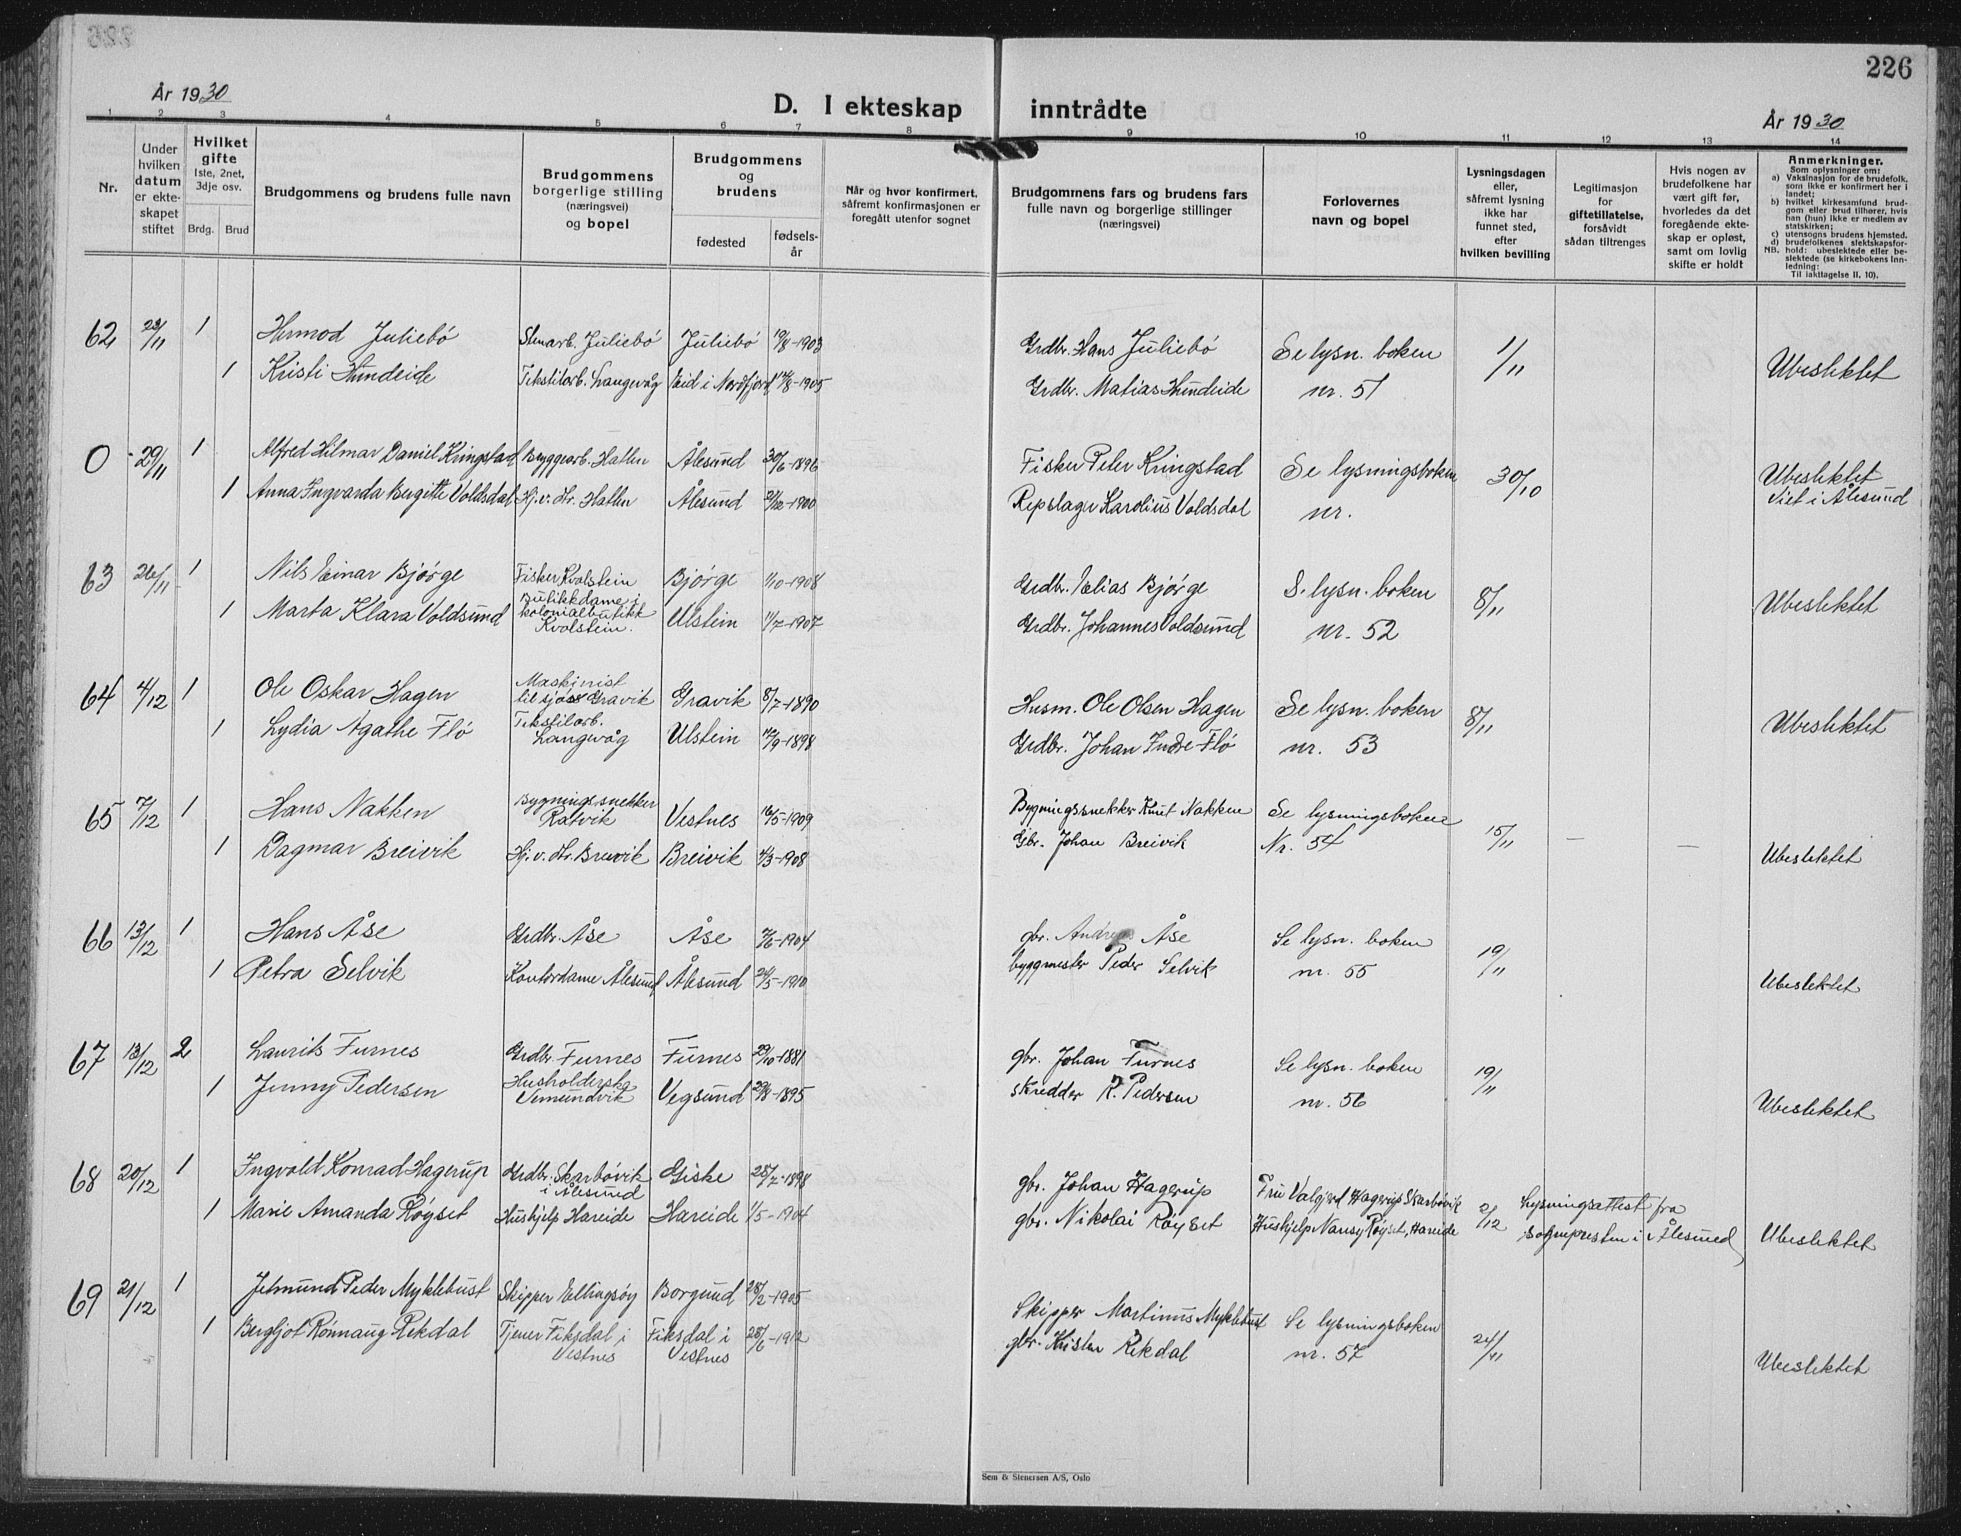 226
År 1930
D. I ekteskap inntrådte
År 1930
1 2 3 4 5 6 7 8 9 10 11 12 13 14
Nr.
Under hvilken datum er ekteskapet stiftet
Hvilket gifte
1ste, 2net, 3dje osv.
Brdg. Brud
Brudgommens og brudens fulle navn
Brudgommens borgerlige stilling (næringsvei) og bopel
Brudgommens og brudens
fødested
fødselsår
Når og hvor konfirmert, såfremt konfirmasjonen er foregått utenfor sognet
Brudgommens fars og brudens fars fulle navn og borgerlige stillinger (næringsvei)
Forlovernes navn og bopel
Lysningsdagen eller, såfremt lysning ikke har funnet sted, efter hvilken bevilling
Legitimasjon for giftetillatelse, forsåvidt sådan tiltrenges
Hvis nogen av brudefolkene har vært gift før, hvorledes da det foregående ekteskap er opløst, samt om lovlig skifte er holdt
Anmerkninger.
Som oplysninger om:
a) Vaksinasjon for de brudefolk, som ikke er konfirmert her i landet;
b) hvilket kirkesamfund brudgom eller brud tilhører, hvis han (hun) ikke er medlem av statskirken;
c) utensogns brudens hjemsted.
d) brudefolkenes slektskapsforhold: ubeslektede eller beslektede (se kirkebokens innledning:
NB.
Til iakttagelse II, 10).
62 23/11 1 Hermod Juliebö Stenarb. Juliebö Juliebö 19/8-1903 Grdbr. Hans Juliebö Se lysn. boken 1/11
1 Kristi Hundeide Tekstilarb. Langevåg Eid i Nordfjord 14/8-1905 Grdbr. Matias Hundeide nr. 51 Ubeslektet
0 29/11 1 Alfred Hilmar Daniel Kringstad Byggearb. Hatlen Ålesund 30/6-1896 Fisker Peter Kringstad Se lysningsboken 30/10 Ubeslektet
1 Anna Ingvarda Bergitte Voldsdal Hj. v. Hr. Hatlen Ålesund 2/12-1900 Repslager Karolius Voldsdal nr. Viet i Ålesund
63 26/11 1 Nils Einar Bjørge Fisker Kvolstein Bjørge 1/10-1908 Grdbr. Elias Bjørge S. lysn. boken 8/11
1 Marta Klara Voldsund Butikkdame i kolonialbutikk Kvolstein. Ulstein 11/7-1907 Grdbr. Johannes Voldsund nr. 52 Ubeslektet
64 4/12 1 Ole Oskar Hagen Maskinist til sjøss Gravik Gravik 8/7-1890 Husm. Ole Olsen Hagen Se lysn. boken 8/11
1 Lydia Agathe Flö Tekstilarb. Langevåg Ulstein 12/9-1898 Grdbr. Johan Indre-Flö nr. 53 Ubeslektet
65 7/12 1 Hans Nakken Bygningssnekker Ratvik Vestnes 16/5-1909 Bygningssnekker Knut Nakken Se lysningsboken 15/11
1 Dagmar Breivik Hj. v. Hr. Breivik Breivik 4/3-1908 Gbr. Johan Breivik Nr. 54 Ubeslektet
66 13/12 1 Hans Åse Grdbr. Åse Åse 7/6-1904 gbr. Åse Se lysn. boken 19/11
1 Petra Selvik Kontordame Ålesund Ålesund 26/5-1910 byggmester Peder Selvik nr. 55 Ubeslektet
67 13/12 2 Laurits Furnes Grdbr. Furnes Furnes 29/10-1881 gbr. Johan Furnes Se lysn. boken 19/11
1 Jenny Pedersen Husholderske Vemundvik Vegsund 29/8-1895 skredder R. Pedersen nr. 56 Ubeslektet
68 20/12 1 Ingvald Konrad Hagerup Grdbr. Skarbövik i Ålesund Giske 28/7-1898 gbr. Johan Hagerup Fru Valgjerd Hagerup Skarbövik 2/12 Lysningsattest fra
1 Marie Amanda Röyset Hushjelp Hareide Hareide 1/5-1904 gbr. Nikolai Röyset Hushjelp Nansy Röyset, Hareide Sognepresten i Ålesund Ubeslektet
69 21/12 1 Jetmund Peder Myklebust Skipper Ellingsöy Borgund 28/2-1905 Skipper Martinus Myklebust Se lysningsboken 24/11
1 Bergljot Rönnaug Rekdal Tjener Fiksdal i Vestnes Fiksdal i Vestnes 28/6-1912 gbr. Kristen Rekdal nr. 57 Ubeslektet
Sem & Stenersen A/S, Oslo